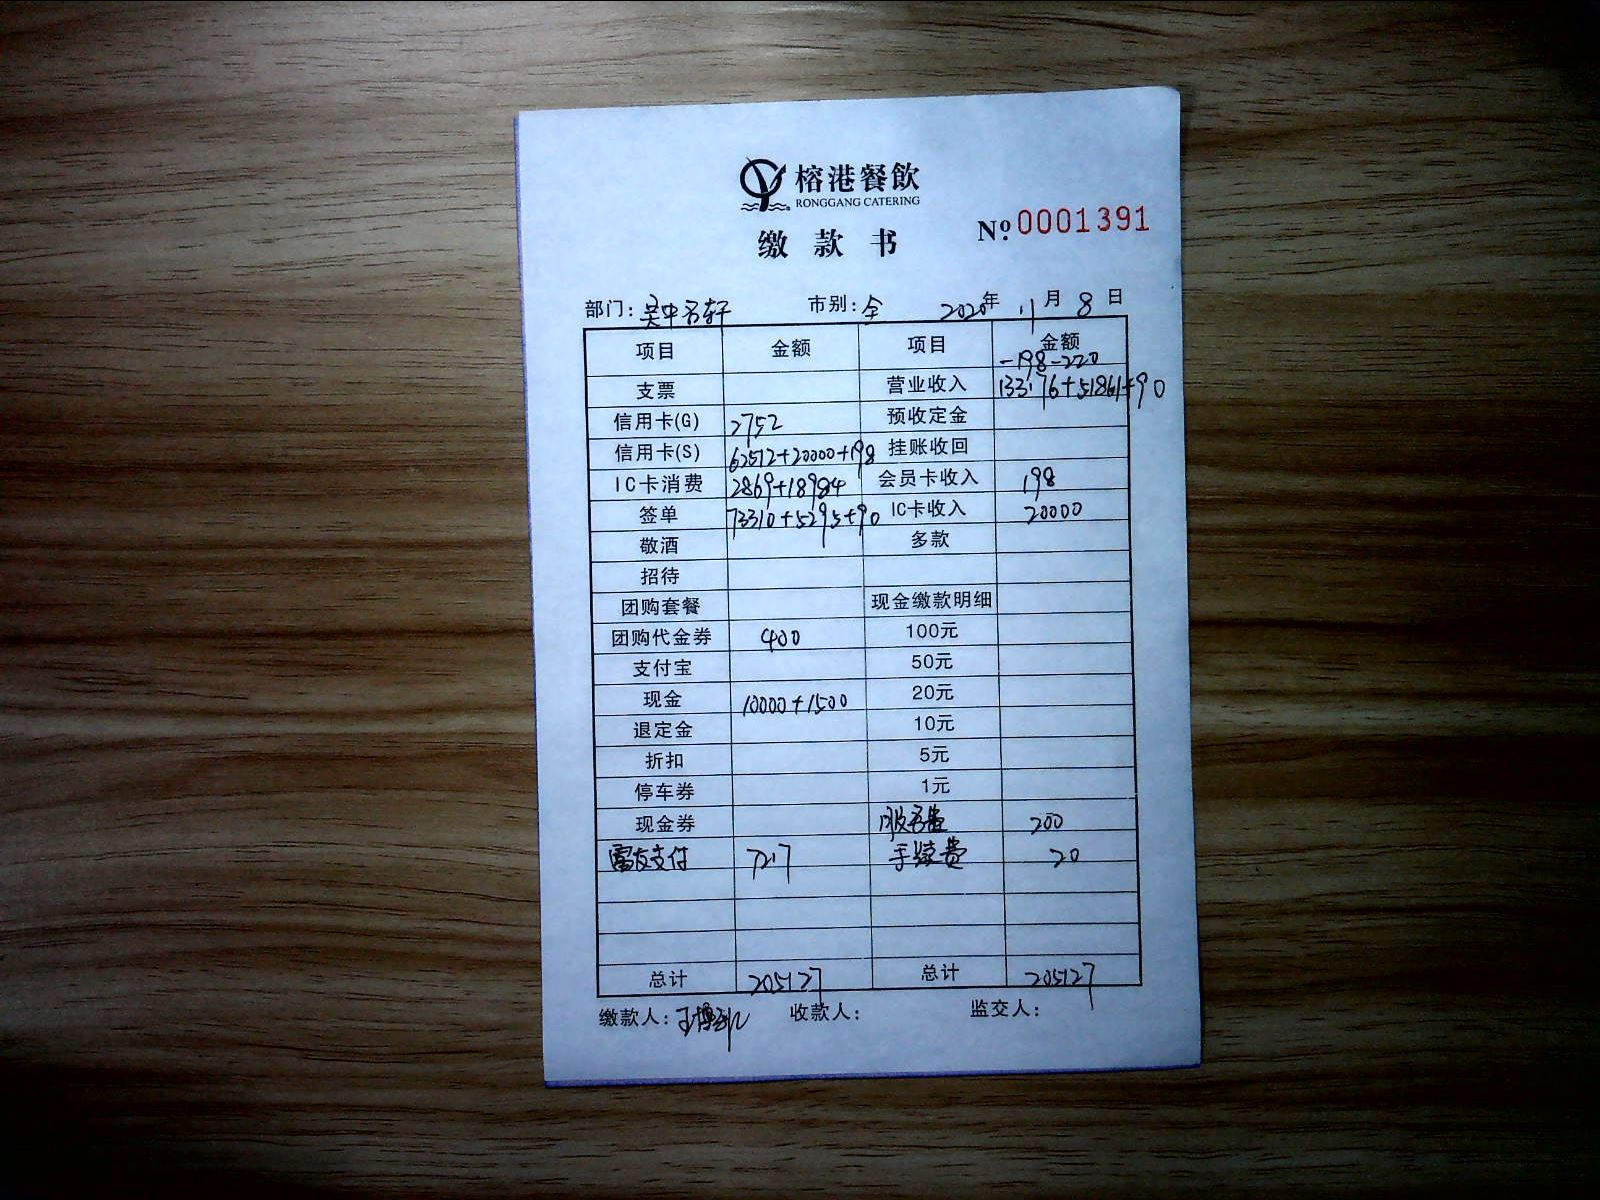 榕港餐飲
RONGGANG CATERING
缴款书
№ 0001391
部门：吴中名轩 市别：全 2020年 11月 8日
项目 金额 项目 金额
-198-220
支票 营业收入 133176+51861+90
信用卡(G) 2752 预收定金
信用卡(S) 62512+20000+198 挂账收回
IC卡消费 2869+18984 会员卡收入 198
签单 73310+5295+90 IC卡收入 20000
敬酒 多款
招待
团购套餐 现金缴款明细
团购代金券 400 100元
支付宝 50元
现金 10000+1500 20元
退定金 10元
折扣 5元
停车券 1元
现金券 服务费 200
支付 7217 手续费 20
总计 205127 总计 205127
缴款人： 收款人： 监交人：